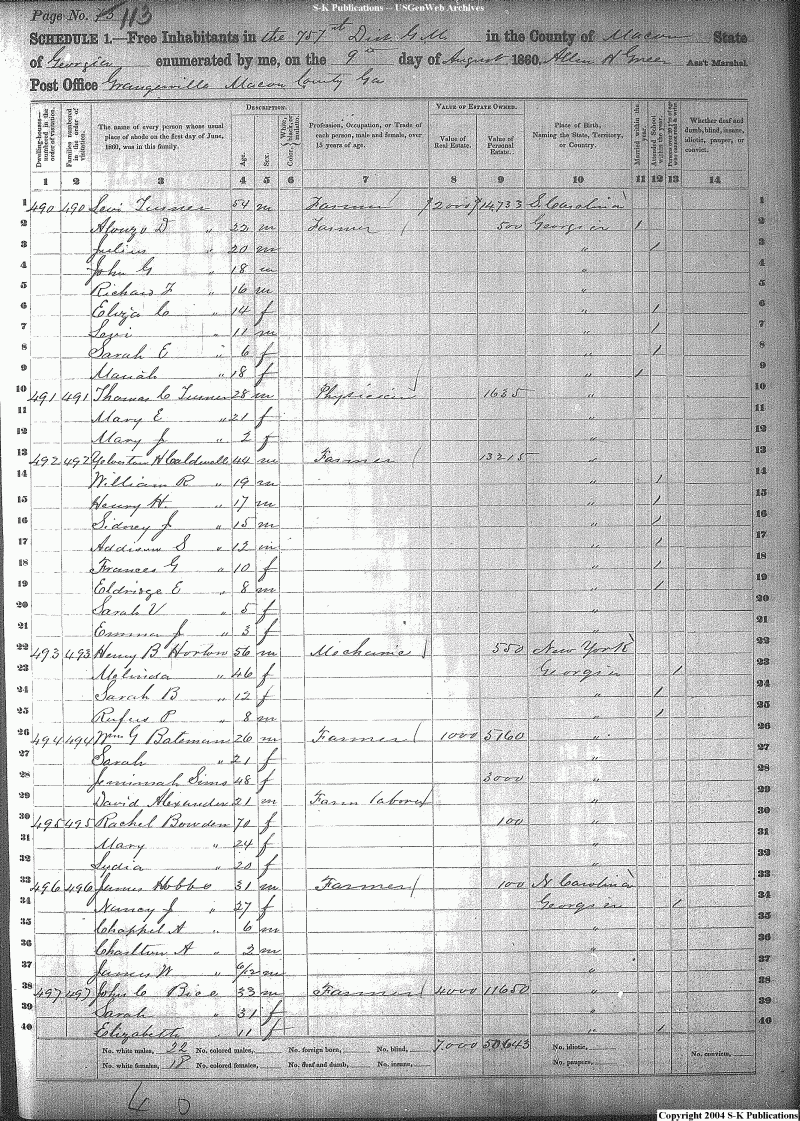 S-K Publications -- USGenWeb Archives
Page No. 113
SCHEDULE 1.—Free Inhabitants in the 757th Dist G.M. in the County of Macon State
of Georgia enumerated by me, on the 9th day of August 1860. Allen H Greer Ass't Marshal.
Post Office Grangerville Macon County Ga
Dwelling-houses—numbered in the order of visitation.
Families numbered in the order of visitation.
The name of every person whose usual place of abode on the first day of June, 1860, was in this family.
DESCRIPTION.
Age.
Sex.
Color, White, black, or mulatto.
Profession, Occupation, or Trade of each person, male and female, over 15 years of age.
VALUE OF ESTATE OWNED.
Value of Real Estate.
Value of Personal Estate.
Place of Birth, Naming the State, Territory, or Country.
Married within the year.
Attended School within the year.
Persons over 20 y'rs of age who cannot read & write.
Whether deaf and dumb, blind, insane, idiotic, pauper, or convict.
1 2 3 4 5 6 7 8 9 10 11 12 13 14
1 490 490 Levi Turner 54 m Farmer 2000 14733 S. Carolina 1
2 Alonzo D " 22 m Farmer 500 Georgia 1 2
3 Julius " 20 m " 1 3
4 John G " 18 m " 4
5 Richard F " 16 m " 5
6 Eliza C " 14 f " 1 6
7 Levi " 11 m " 1 7
8 Sarah E " 6 f " 1 8
9 Mariah " 18 f " 1 9
10 491 491 Thomas C Turner 28 m Physician 1635 " 10
11 Mary E " 21 f " 11
12 Mary J " 2 f " 12
13 492 492 Yelverton H Caldwell 44 m Farmer 13215 " 13
14 William R " 19 m " 1 14
15 Henry H. " 17 m " 1 15
16 Sidney J " 15 m " 1 16
17 Addison S " 12 m " 1 17
18 Frances G " 10 f " 1 18
19 Eldridge E " 8 m " 1 19
20 Sarah V " 5 f " 20
21 Emma J " 3 f " 21
22 493 493 Henry B Horton 56 m Mechanic 550 New York 22
23 Melinda " 46 f Georgia 1 23
24 Sarah B " 12 f " 1 24
25 Rufus P " 8 m " 1 25
26 494 494 Wm G Bateman 26 m Farmer 1000 5160 " 26
27 Sarah " 21 f " 27
28 Jemimah Sims 48 f 3000 " 28
29 David Alexander 21 m Farm laborer " 29
30 495 495 Rachel Bowden 70 f 100 " 30
31 Mary " 24 f " 31
32 Lydia " 20 f " 32
33 496 496 James Hobbs 31 m Farmer 100 N Carolina 33
34 Nancy J " 27 f Georgia 1 34
35 Chappel A " 6 m " 35
36 Charlton A " 2 m " 36
37 James W " 6/12 m " 37
38 497 497 John C Rice 33 m Farmer 4000 11650 " 38
39 Sarah " 31 f " 39
40 Elizabeth " 11 f " 1 40
No. white males, 22 No. colored males, No. foreign born, No. blind, 7,000 50643 No. idiotic,
No. white females, 18 No. colored females, No. deaf and dumb, No. insane, No. paupers, No. convicts,
40
Copyright 2004 S-K Publications